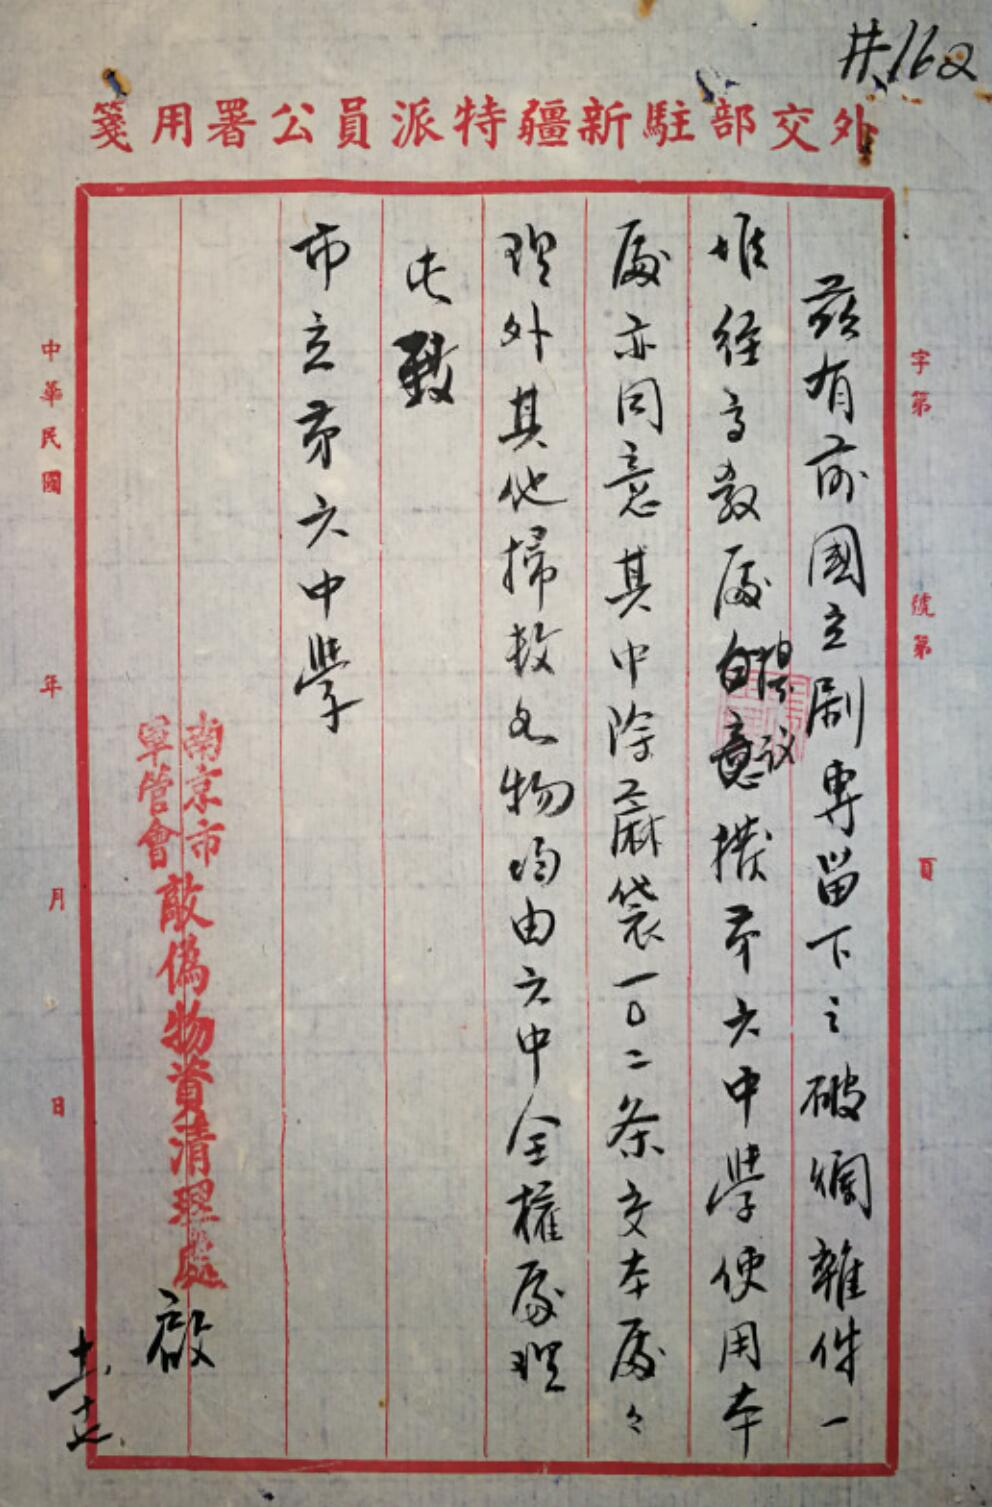 共162
外交部駐新疆特派員公署用箋
字第 號第 頁
茲有前國立劇專留下之破爛雜件一
堆經高教處提议撥第六中學使用本
處亦同意其中除蔴袋一〇二条交本處々
理外其他掃数文物均由六中全權處理
此致
市立第六中學
南京市
軍管會
敵偽物資清理處
啟
中華民國 年 月 日